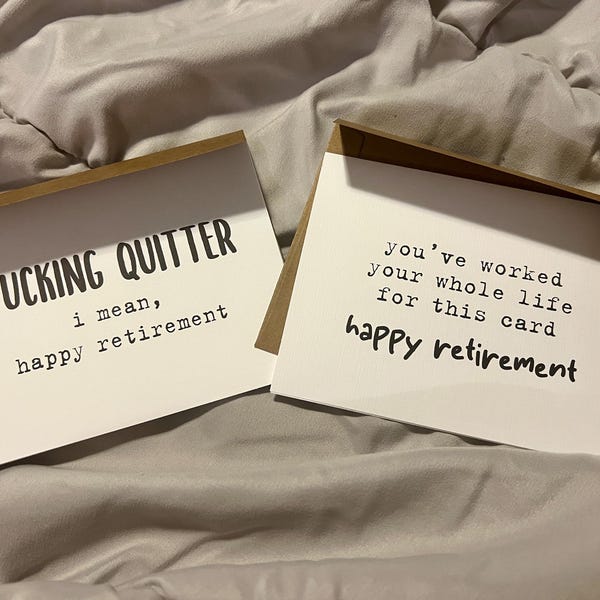 UCKING QUITTER
i mean,
happy retirement
you've worked
your whole life
for this card
happy retirement